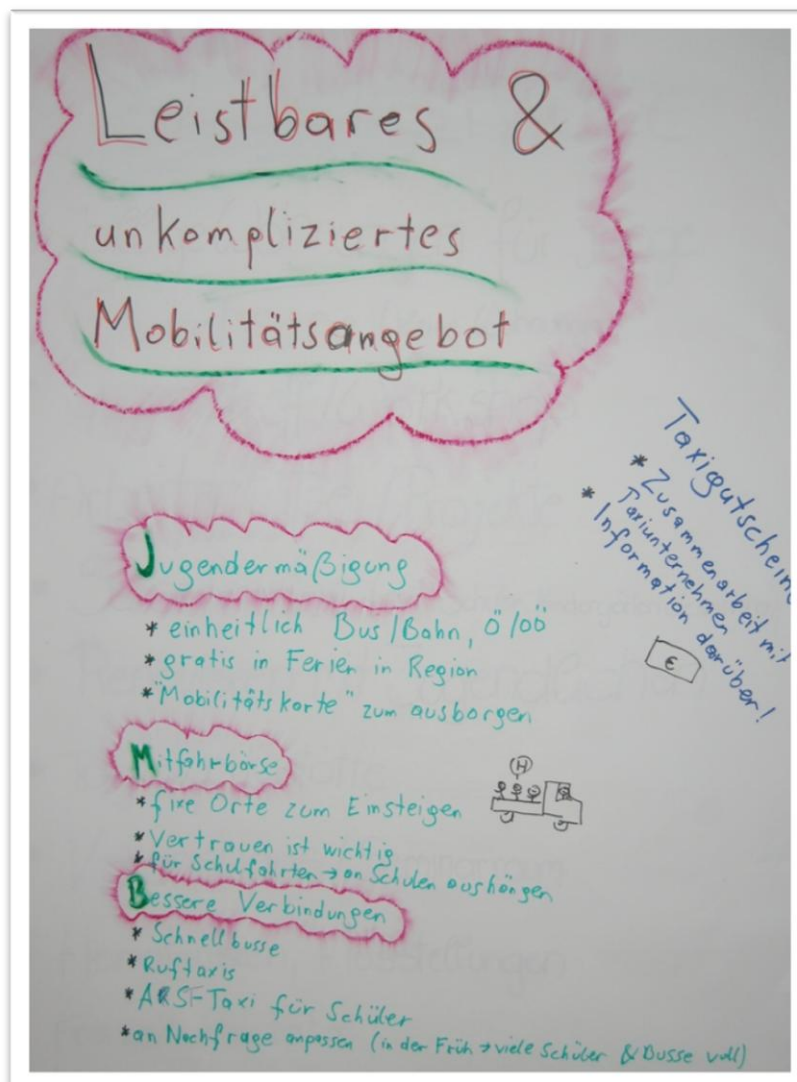 Leistbares &
unkompliziertes
Mobilitätsangebot
Taxigutscheine
* Zusammenarbeit mit
Taxiunternehmen
* Information darüber!
€
Jugendermäßigung
* einheitlich Bus/Bahn, Ö/OÖ
* gratis in Ferien in Region
* "Mobilitätskarte" zum ausborgen
Mitfahrbörse
H
* fixe Orte zum Einsteigen
* Vertrauen ist wichtig
* für Schulfahrten → an Schulen aushängen
Bessere Verbindungen
* Schnellbusse
* Ruftaxis
* ARSF Taxi für Schüler
* an Nachfrage anpassen (in der Früh → viele Schüler & Busse voll)